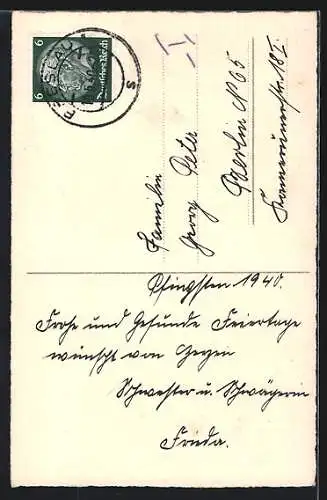 6 Deutsches Reich 6
BRESLAU
S
I
Familie
Georg Peter
Berlin N 65
Kamerunerstr. 18 I.
Pfingsten 1940.
Frohe und Gesunde Feiertage
wünscht von
Schwester u. Schwägerin
Frieda.